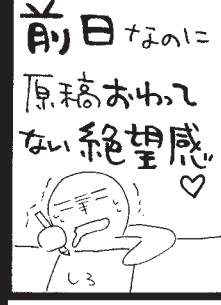 前日なのに
原稿おわって
ない絶望感♡
しろ